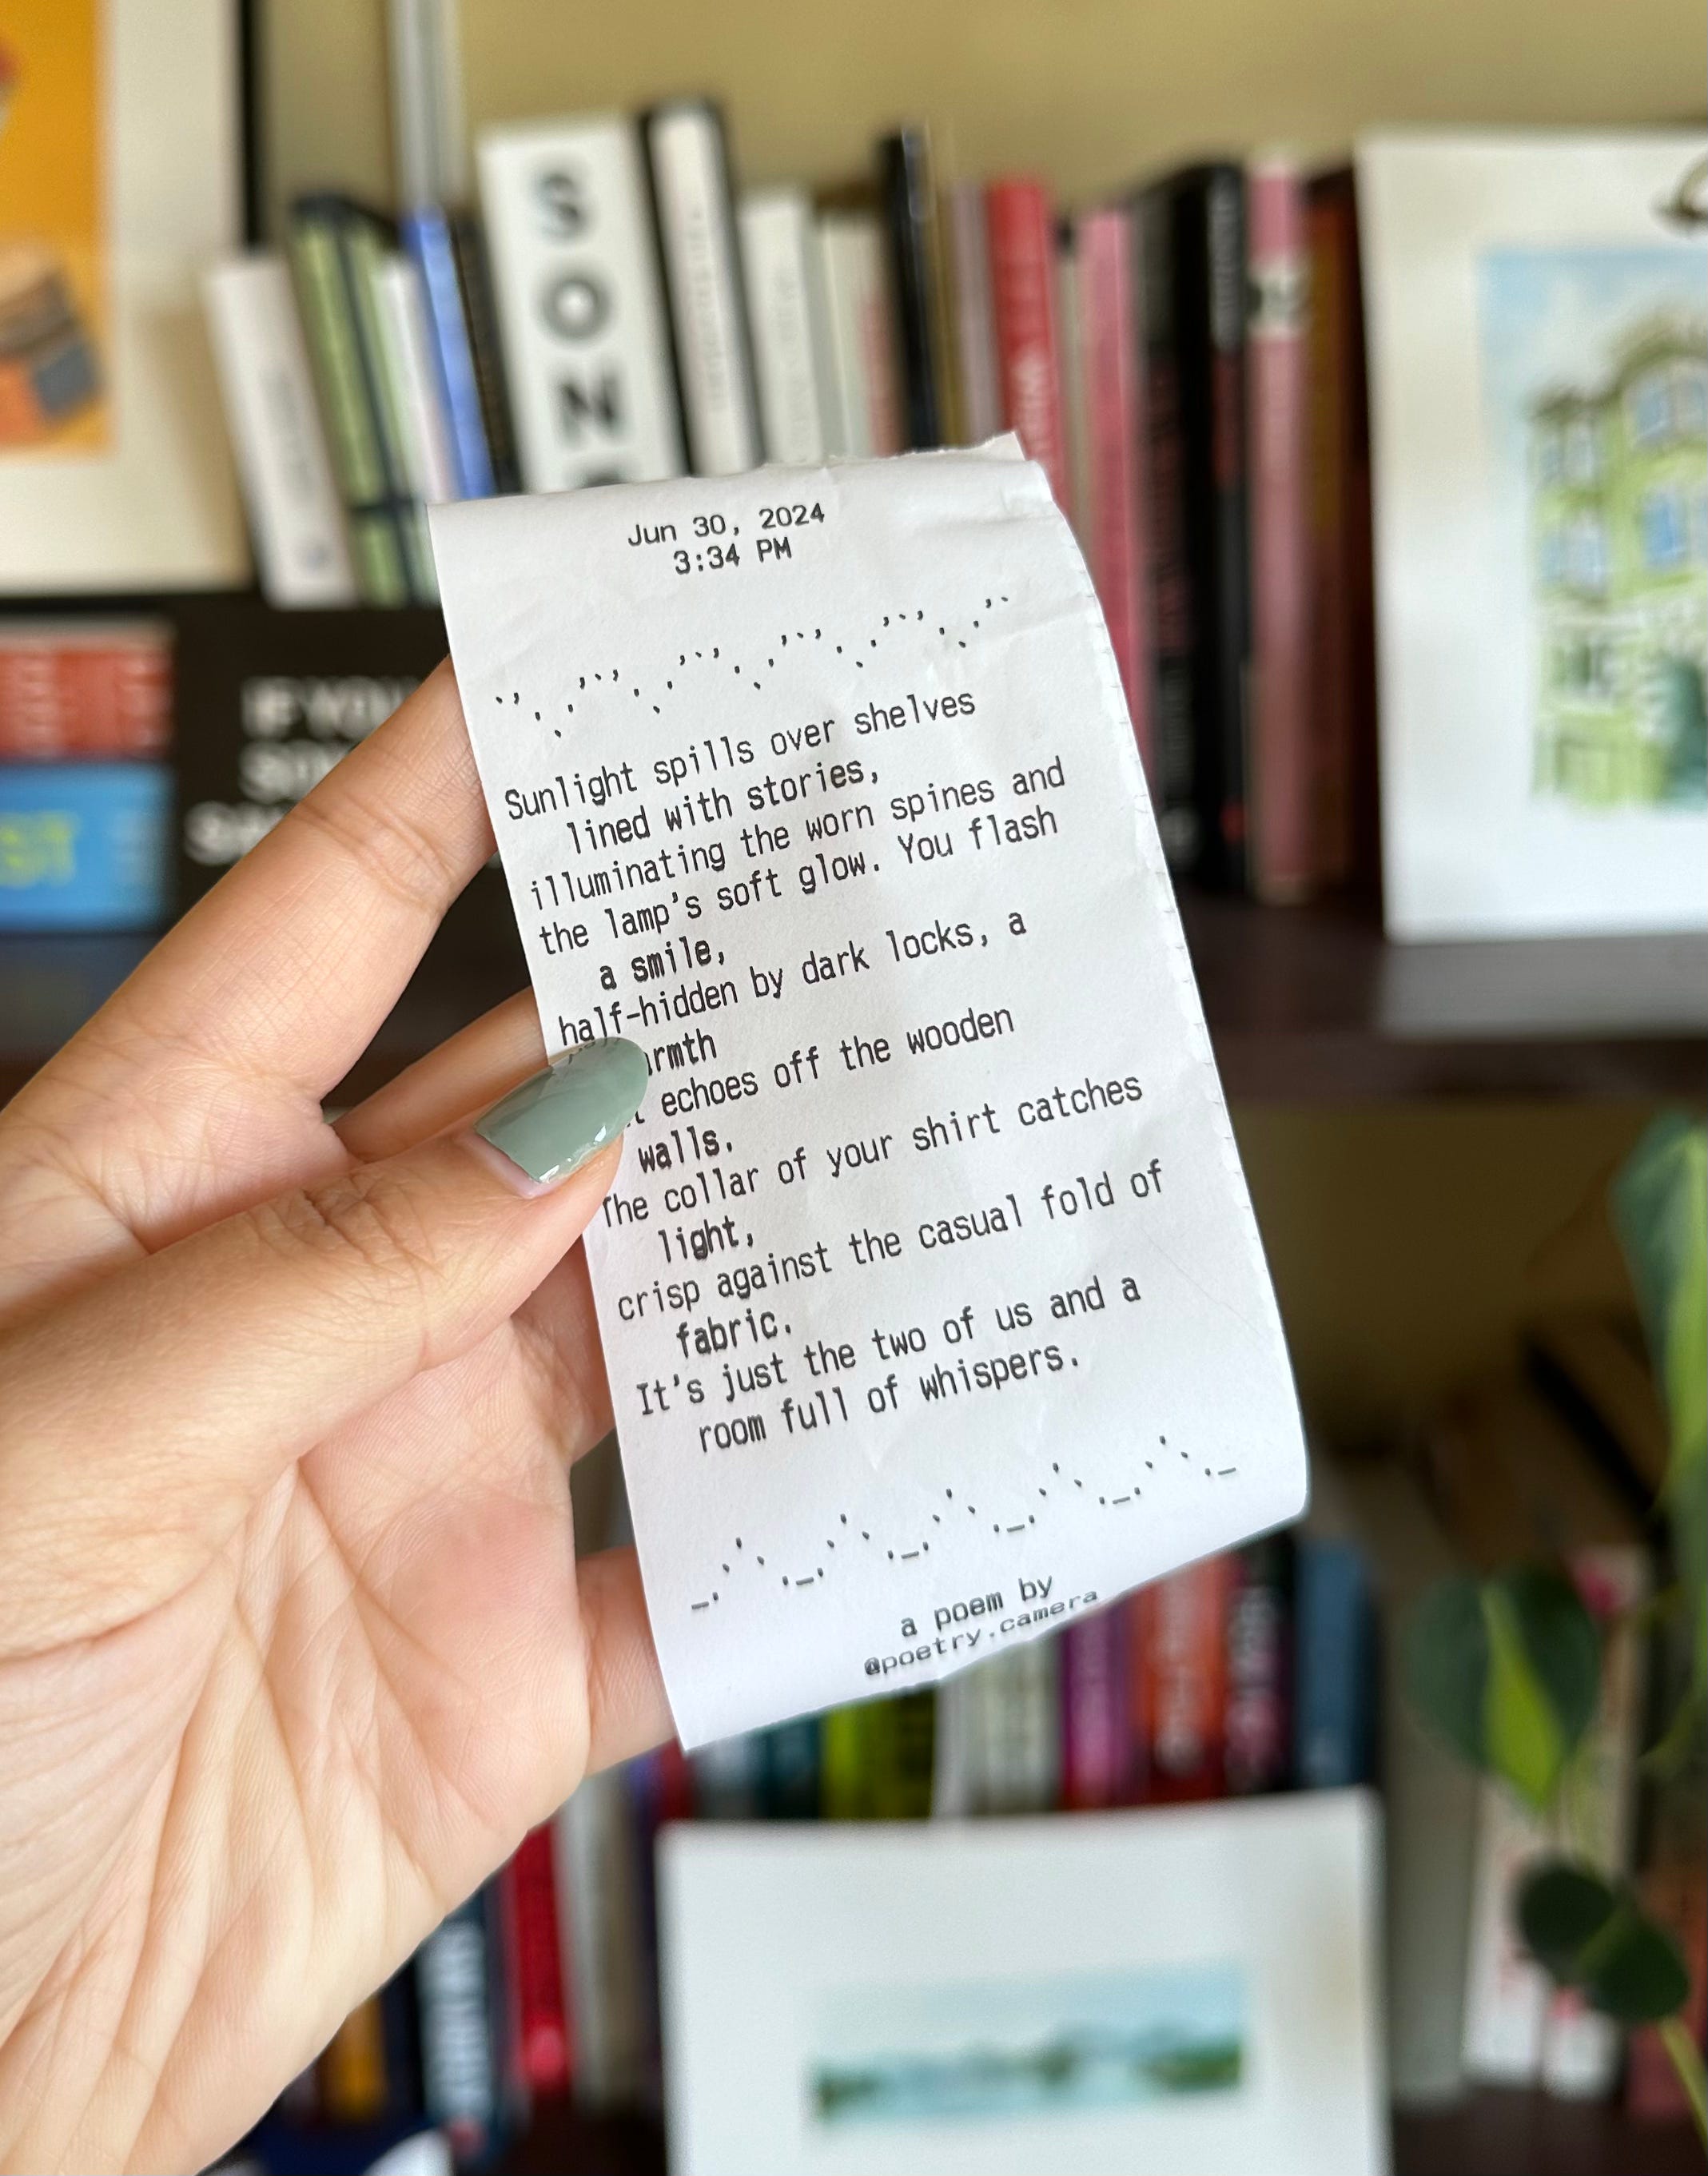 SON
IF YOU
Jun 30, 2024
3:34 PM
Sunlight spills over shelves
lined with stories,
illuminating the worn spines and
the lamp's soft glow. You flash
a smile,
half-hidden by dark locks, a
rmth
echoes off the wooden
walls.
The collar of your shirt catches
light,
crisp against the casual fold of
fabric.
It's just the two of us and a
room full of whispers.
a poem by
@poetry.camera